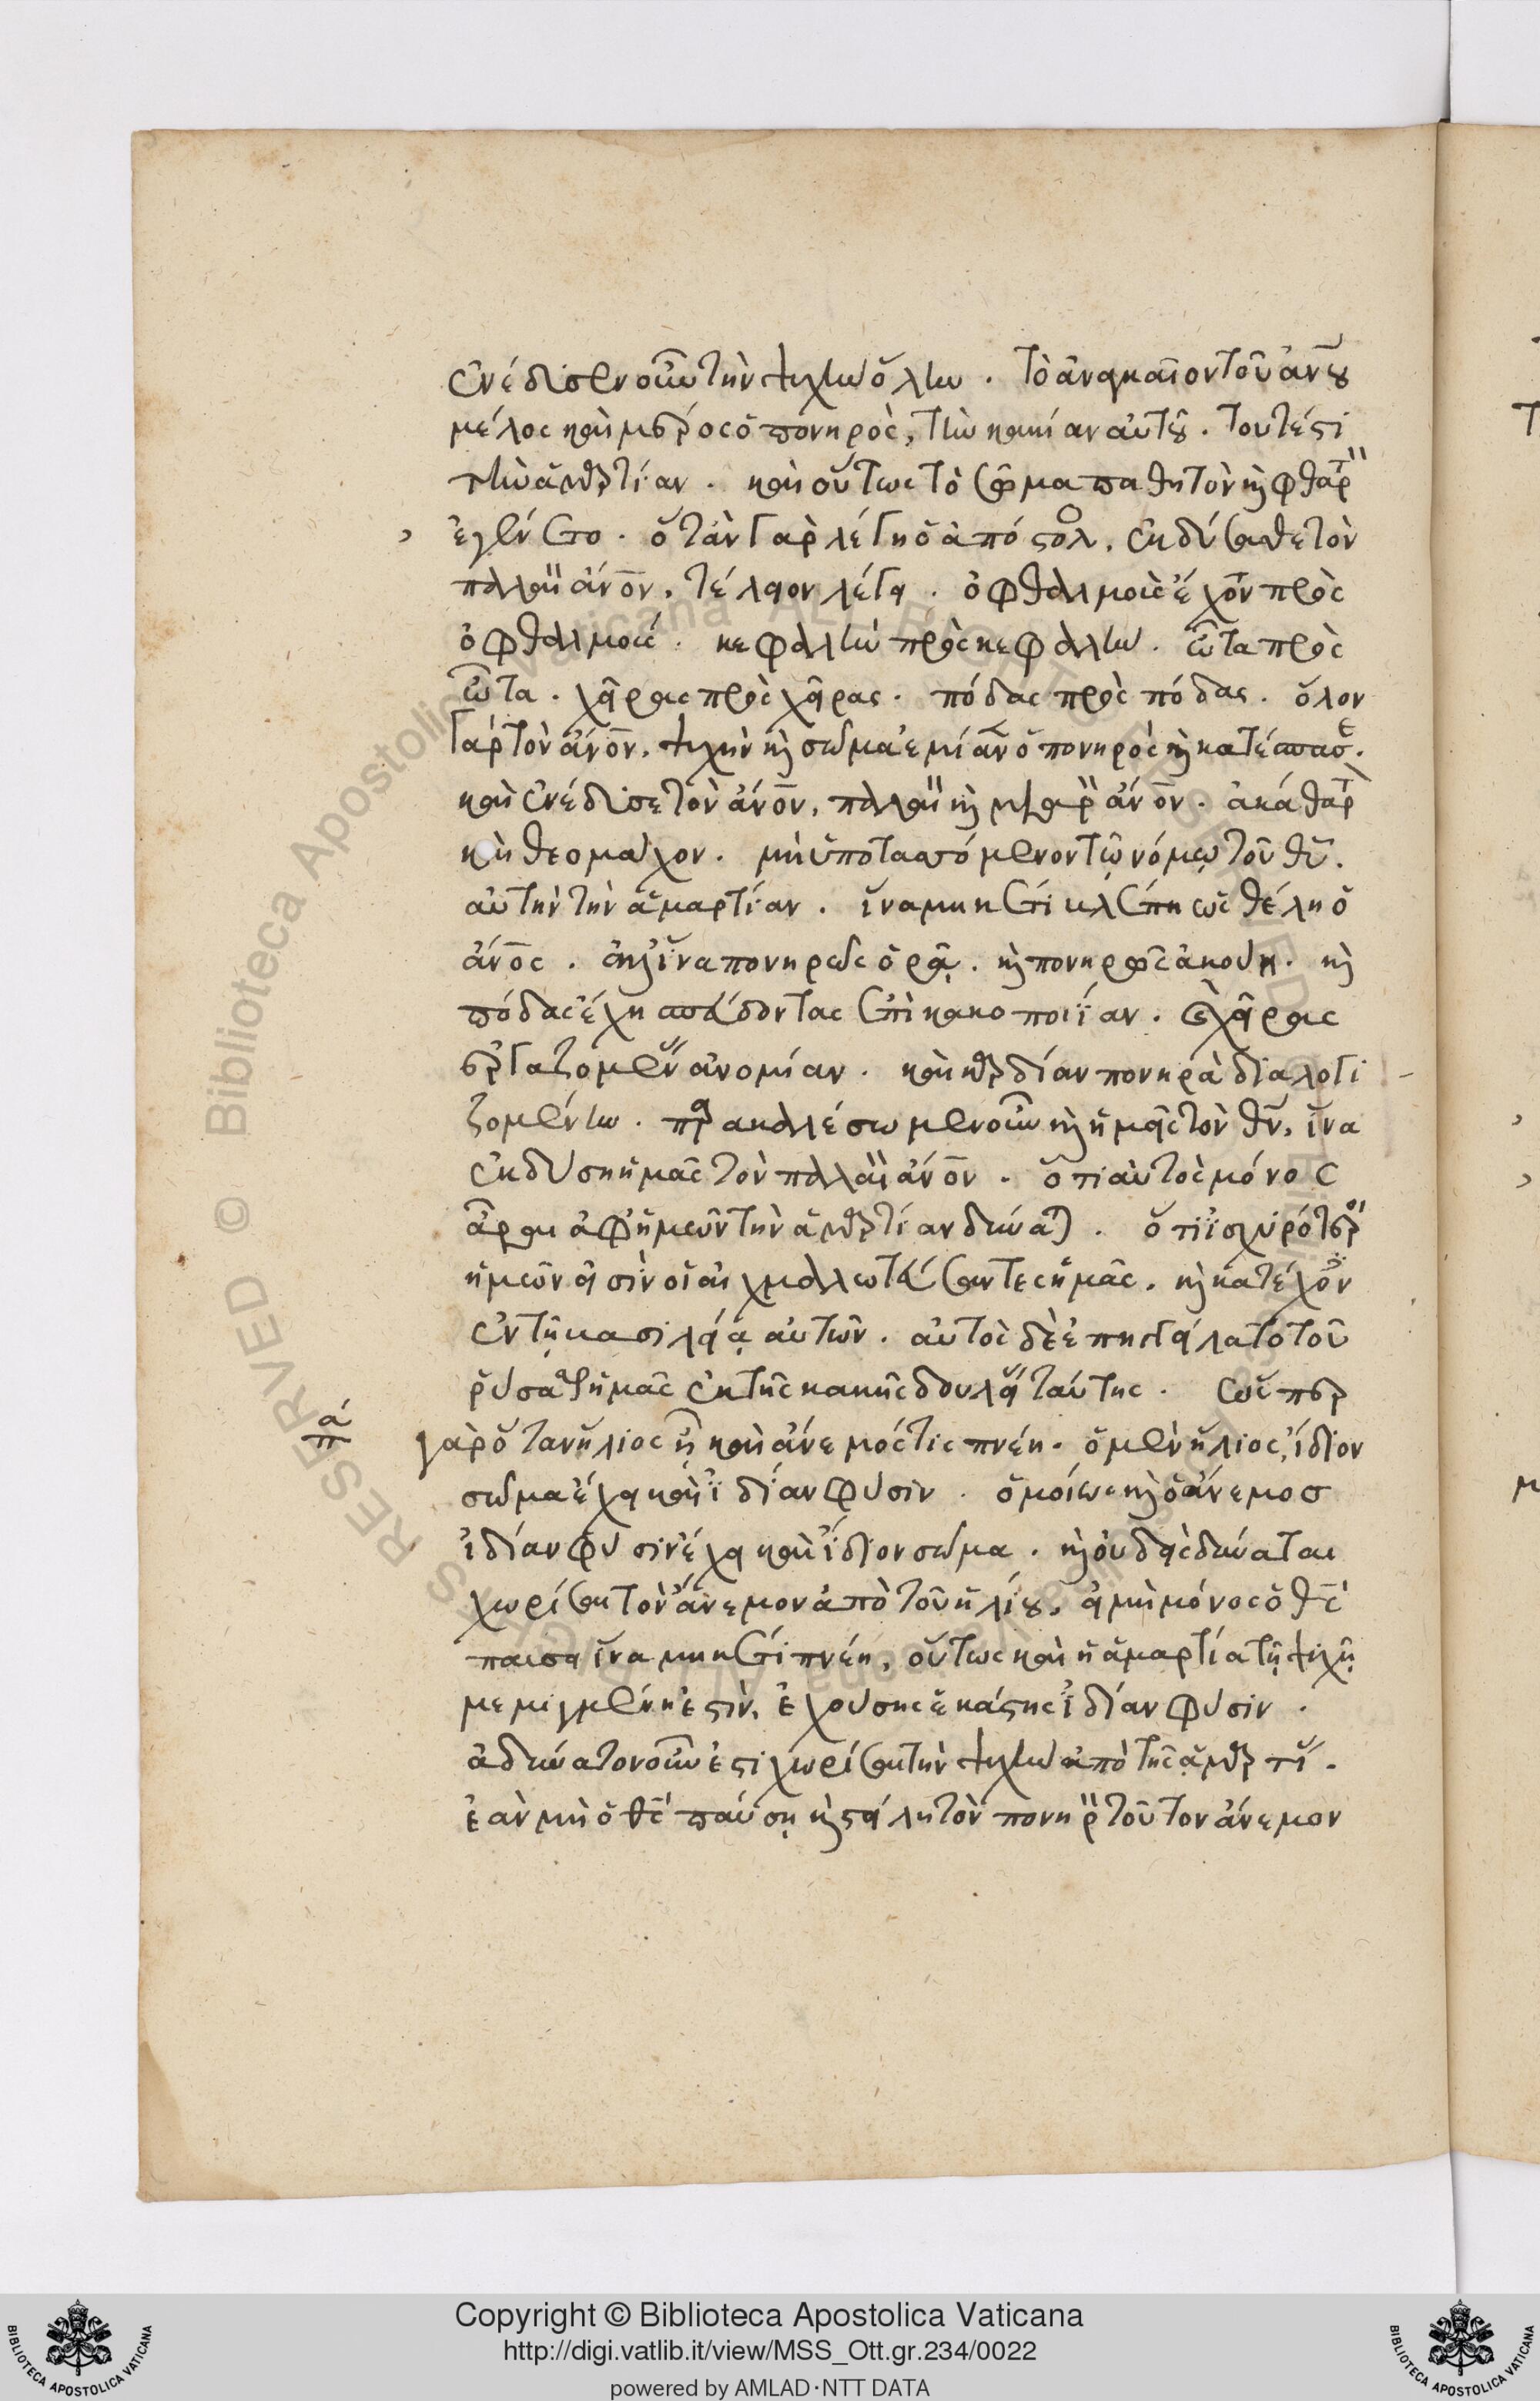 ἐνέδυσεν οὖν τὴν ψυχὴν ὅλην. τὸ ἀναγκαῖον τοῦ ἀν̅ου
μέλος καὶ μέρος ὁ πονηρὸς, τὴν κακίαν αὐτοῦ. τουτέστι
τὴν ἁμαρτίαν. καὶ οὕτως τὸ σῶμα παθητὸν καὶ φθαρτ
ἐγένετο. ὅταν γὰρ λέγη ὁ ἀπόστολ, ἐκδύσασθε τὸν
παλαι ἄν̅ον, τέλειον λέγει. ὀφθαλμοὺς ἔχον πρὸς
ὀφθαλμούς. κεφαλὴν πρὸς κεφαλήν. ὦτα πρὸς
ὦτα. χεῖρας πρὸς χεῖρας. πόδας πρὸς πόδας. ὅλον
γὰρ τὸν ἄν̅ον, ψυχὴν καὶ σῶμα ἐμίανεν ὁ πονηρὸς καὶ κατέσπασε.
καὶ ἐνέδυσε τὸν ἄν̅ον, παλαι καὶ μιαρ ἄν̅ον. ἀκάθαρτ
καὶ θεομάχον. μὴ ὑποτασσόμενον τῷ νόμῳ τοῦ θ̅υ.
αὐτὴν τὴν ἁμαρτίαν. ἵνα μηκέτι βλέπη ὡς θέλη ὁ
ἄν̅ος. ἀλλ' ἵνα πονηρῶς ὁρᾷ. καὶ πονηρῶς ἀκούη. καὶ
πόδας ἔχη σπεύδοντας ἐπὶ κακοποιΐαν. καὶ χεῖρας
ἐργαζομέν ἀνομίαν. καὶ καρδίαν πονηρὰ διαλογι
ζομένην. παρακαλέσωμεν οὖν καὶ ἡμεῖς τὸν θ̅ν, ἵνα
ἐκδύση ἡμᾶς τὸν παλαι ἄν̅ον. ὅτι αὐτὸς μόνος
ἆραι ἀφ' ἡμῶν τὴν ἁμαρτίαν δύναται. ὅτι ἰσχυρότερ
ἡμῶν εἰσὶν οἱ αἰχμαλωτεύσαντες ἡμᾶς, καὶ κατέχον
ἐν τῇ βασιλείᾳ αὐτῶν. αὐτὸς δὲ ἐπηγγείλατο τοῦ
ῥύσασθαι ἡμᾶς ἐκ τῆς κακῆς δουλεί ταύτης. ὥσπερ
πα
γὰρ ὅταν ἥλιος ᾖ καὶ ἄνεμός τις πνέη. ὁ μὲν ἥλιος, ἴδιον
σῶμα ἔχει καὶ ἰδίαν φύσιν. ὁμοίως καὶ ὁ ἄνεμος
ἰδίαν φύσιν ἔχει καὶ ἴδιον σῶμα. καὶ οὐδεὶς δύναται
χωρίσαι τὸν ἄνεμον ἀπὸ τοῦ ἡλίου, εἰ μὴ μόνος ὁ θ̅ς
παύσει ἵνα μηκέτι πνέη, οὕτως καὶ ἡ ἁμαρτία τῇ ψυχῇ
μεμιγμένη ἐστὶν, ἐχούσης ἑκάστης ἰδίαν φύσιν.
ἀδύνατον οὖν ἐστι χωρίσαι τὴν ψυχὴν ἀπὸ τῆς ἁμαρτί.
ἐὰν μὴ ὁ θ̅ς παύσῃ καὶ στείλη τὸν πονηρ τοῦτον ἄνεμον
Copyright © Biblioteca Apostolica Vaticana
http://digi.vatlib.it/view/MSS_Ott.gr.234/0022
powered by AMLAD·NTT DATA